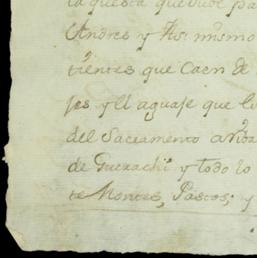 la questa que sube pa
Andres y Asi mismo
tientes que Caen de
jes y el aguaje que ll
del Sacramento
de Guerachi y todo lo
te Montes, Pastos; y